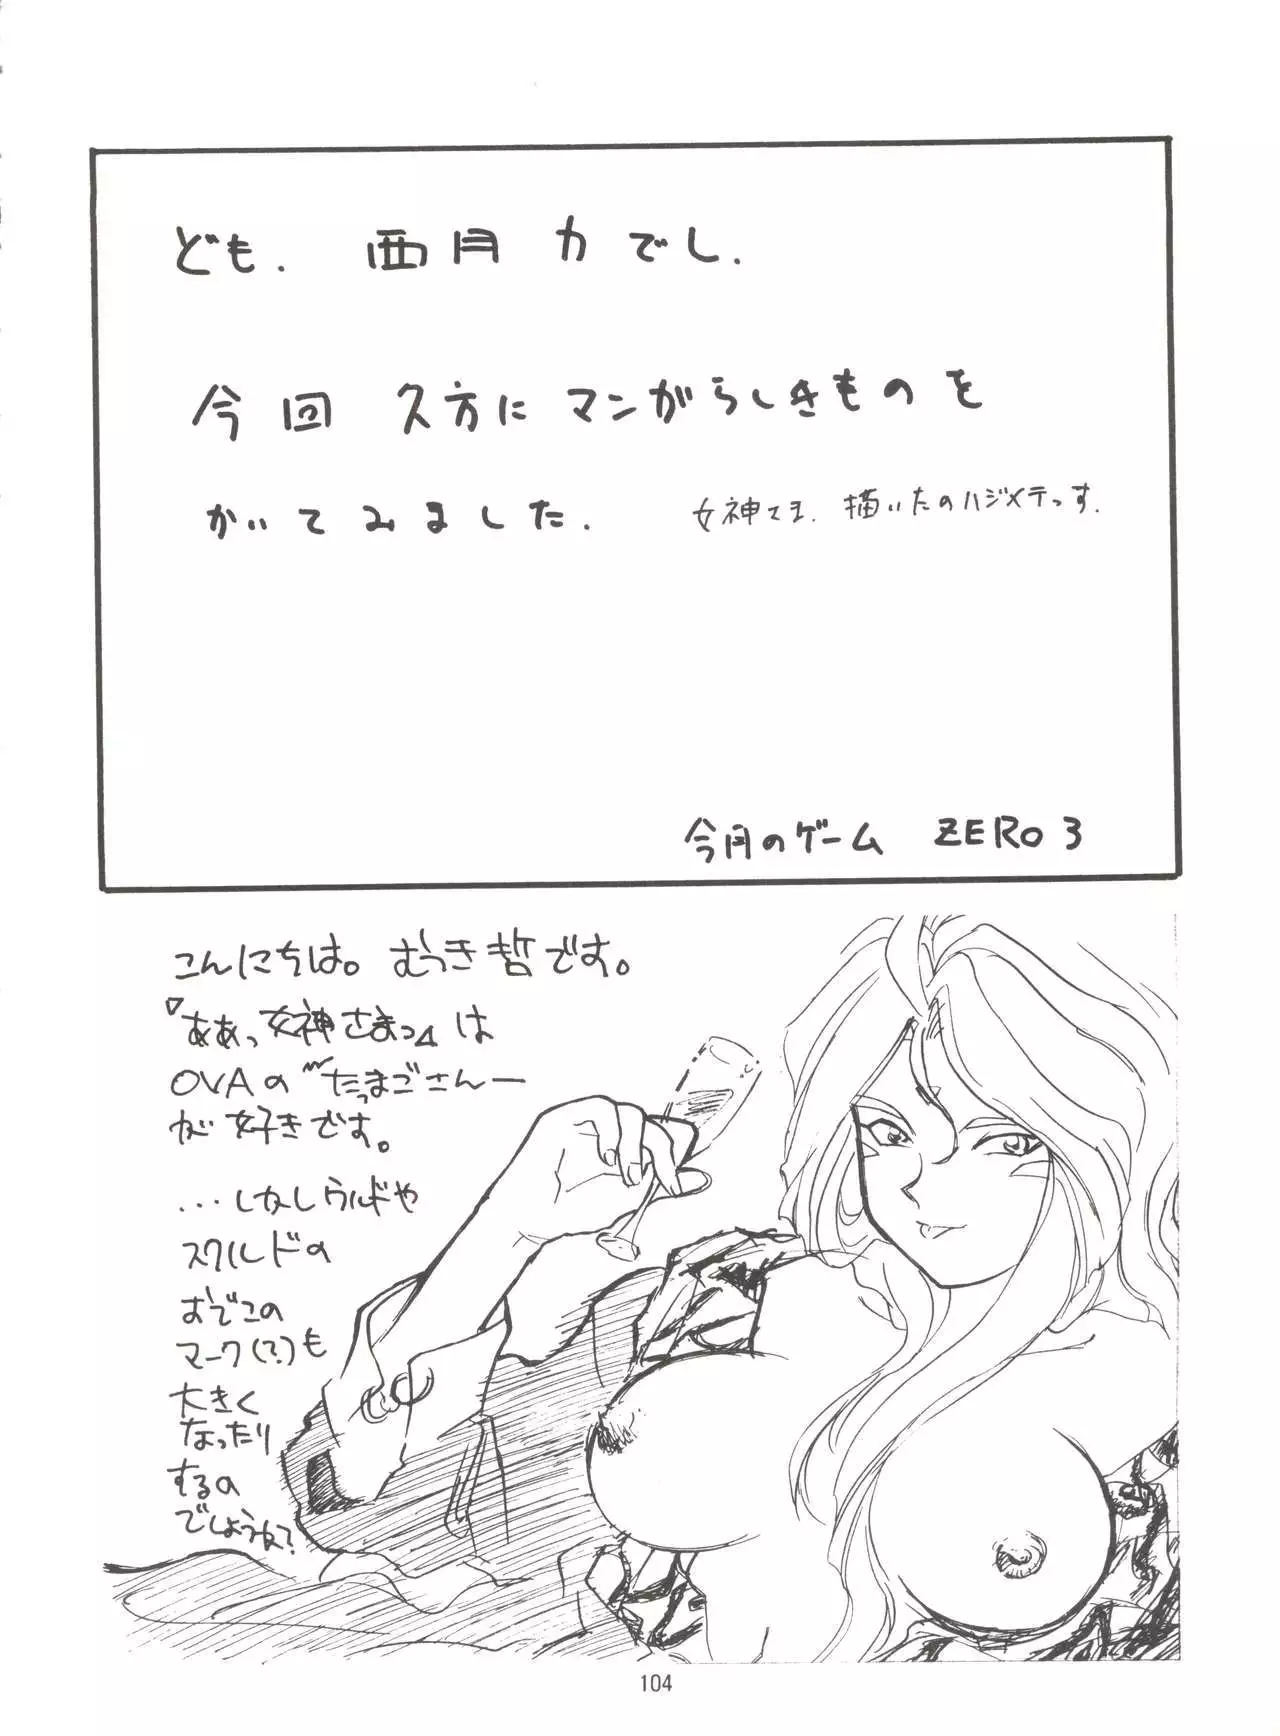 ども. 西月 力でし.
今回 久方に マンガらしきものを
かいてみました. 女神さま. 描いたのハジメテっす.
今月のゲーム ZERO3
こんにちは。むつき哲です。
『ああっ女神さまっ』は
OVAの〝たまごさんー
が好きです。
...しかしウルドや
スクルドの
おでこの
マーク(?)も
大きく
なったり
するの
でしょうね?
104